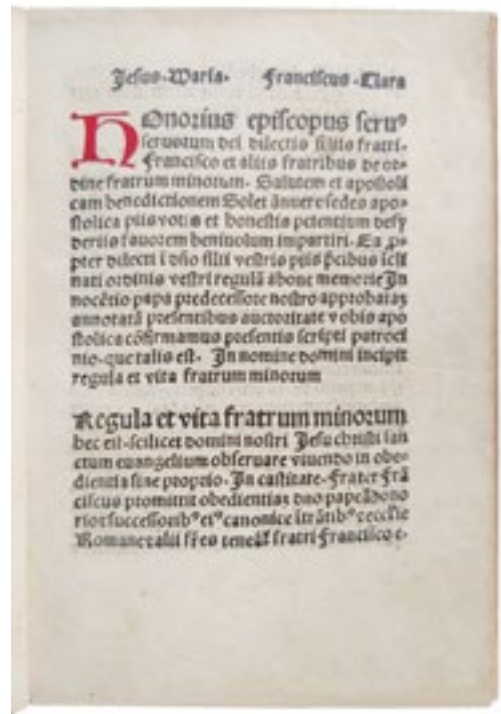 Jesus·Maria· Franciscus·Clara
HOnorius episcopus seruꝰ
seruorum dei dilectis filiis fratri·
Francisco et aliis fratribus de or-
dine fratrum minorum· Salutem et apostoli
cam benedictionem Solet ānuere sedes apo-
stolica piis votis et honestis petentium desy
deriis fauorem beniuolum impartiri· Ea ꝓ-
pter dilecti i dño filii vestris piis p̄cibus icli
nati ordinis vestri regulā a bone memorie In
nocētio papa predecessore nostro approbataꝫ
annotatā presentibus auctoritate vobis apo
stolica cōfirmamus presentis scripti patroci
nio·que talis est· In nomine domini incipit
regula et vita fratrum minorum
Regula et vita fratrum minorum
hec est·scilicet domini nostri Jesu christi san
ctum euangelium obseruare viuendo in obe-
dientia sine proprio·In castitate·Frater frā
ciscus promittit obedientiaꝫ dño pape hono
rio et successoribꝰ eiꝰ canonice ītrātibꝰ ecclesie
Romane et alii fr̄es fratri Francisco e·